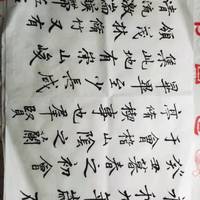 永和九年歲在
癸丑暮春之初會
于會稽山陰之蘭
亭脩禊事也羣賢
畢至少長咸
集此地有崇山峻
領茂林脩竹又有
清流激湍映帶